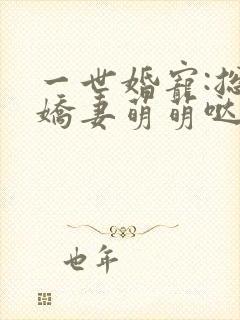 一世婚寵:總
嬌妻萌萌噠
也年